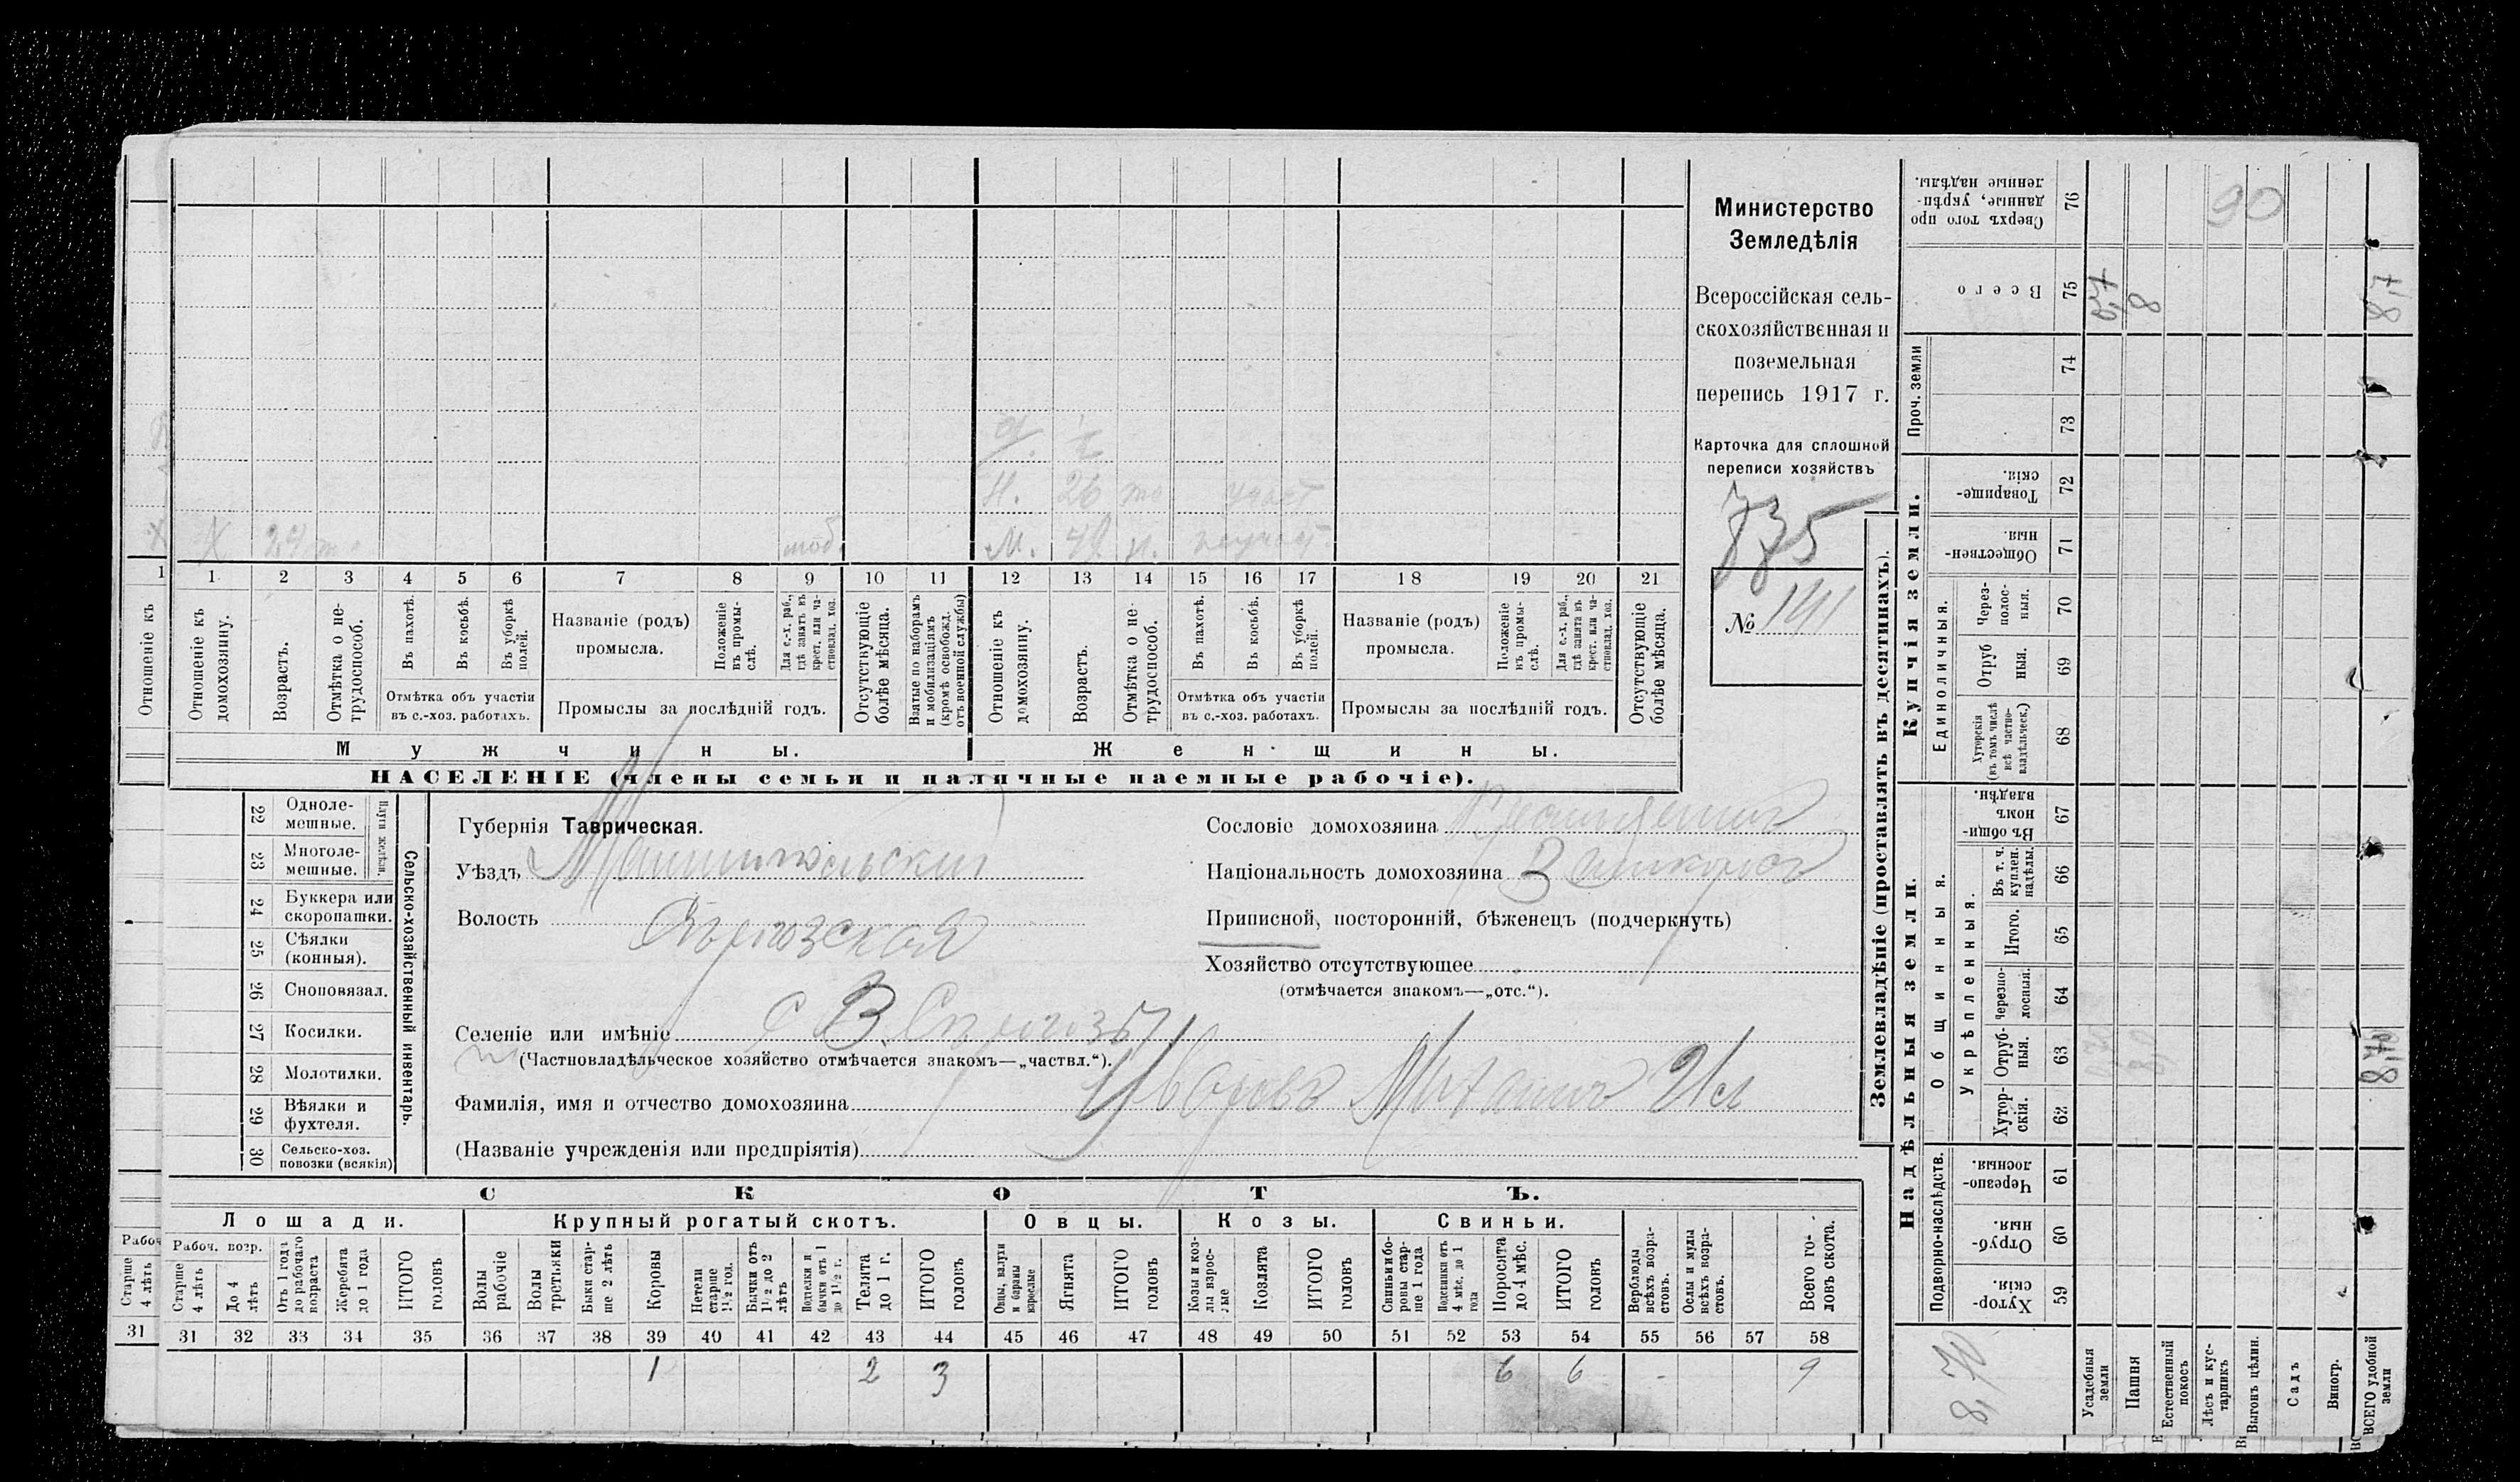 Министерство
Земледѣлія
Всероссійская сель-
скохозяйственная и
поземельная
перепись 1917 г.
Карточка для сплошной
переписи хозяйствъ
735
№ 141
Х 24 моб.
Н. 26 участ
М. 49 н. неучаст.
1 2 3 4 5 6 7 8 9 10 11 12 13 14 15 16 17 18 19 20 21
Отношеніе къ домохозяину.
Возрастъ.
Отмѣтка о не-
трудоспособ.
Въ пахотѣ.
Въ косьбѣ.
Въ уборкѣ
полей.
Отмѣтка объ участіи
въ с.-хоз. работахъ.
Названіе (родъ)
промысла.
Положеніе
въ промы-
слѣ.
Для с.-х. раб.,
гдѣ занятъ въ
крест. или ча-
стновлад. хоз.
Промыслы за послѣдній годъ.
Отсутствующіе
болѣе мѣсяца.
Взятые по наборамъ
и мобилизаціямъ
(кромѣ освобожд.
отъ военной службы)
Отношеніе къ
домохозяину.
Возрастъ.
Отмѣтка о не-
трудоспособ.
Въ пахотѣ.
Въ косьбѣ.
Въ уборкѣ
полей.
Отмѣтка объ участіи
въ с.-хоз. работахъ.
Названіе (родъ)
промысла.
Положеніе
въ промы-
слѣ.
Для с.-х. раб.,
гдѣ занята въ
крест. или ча-
стновлад. хоз.
Промыслы за послѣдній годъ.
Отсутствующіе
болѣе мѣсяца.
Мужчины.
Женщины.
НАСЕЛЕНІЕ (члены семьи и наличные наемные рабочіе).
22 Одноле-
мешные.
23 Многоле-
мешные.
Плуги желѣзн.
24 Буккера или
скоропашки.
25 Сѣялки
(конныя).
26 Сноповязал.
27 Косилки.
28 Молотилки.
29 Вѣялки и
фухтеля.
30 Сельско-хоз.
повозки (всякія)
Сельско-хозяйственный инвентарь.
Губернія Таврическая.
Уѣздъ Мелитопольскій
Волость
Селеніе или имѣніе с В. Сирогозы
(Частновладѣльческое хозяйство отмѣчается знакомъ—„частвл.“).
Фамилія, имя и отчество домохозяина
(Названіе учрежденія или предпріятія)
Сословіе домохозяина Крестьянинъ
Національность домохозяина Великоросъ
Приписной, посторонній, бѣженецъ (подчеркнуть)
Хозяйство отсутствующее
(отмѣчается знакомъ—„отс.“).
СКОТЪ.
Лошади.
Крупный рогатый скотъ.
Овцы.
Козы.
Свиньи.
Рабоч. возр.
Старше
4 лѣтъ
До 4
лѣтъ
Отъ 1 года
до рабочаго
возраста
Жеребята
до 1 года
ИТОГО
головъ
Волы
рабочіе
Волы
третьяки
Быки стар-
ше 2 лѣтъ
Коровы
Нетели
старше
1½ год.
Бычки отъ
1½ до 2
лѣтъ
Подтелки и
бычки отъ 1
до 1½ г.
Телята
до 1 г.
ИТОГО
головъ
Овцы, валухи
и бараны
взрослые
Ягнята
ИТОГО
головъ
Козы и коз-
лы взрос-
лые
Козлята
ИТОГО
головъ
Свиньи и бо-
ровы стар-
ше 1 года
Подсвинки отъ
4 мѣс. до 1
года
Поросята
до 4 мѣс.
ИТОГО
головъ
Верблюды
всѣхъ возра-
стовъ.
Ослы и мулы
всѣхъ возра-
стовъ.
Всего го-
ловъ скота.
31 32 33 34 35 36 37 38 39 40 41 42 43 44 45 46 47 48 49 50 51 52 53 54 55 56 57 58
1 2 3 6 6 9
Землевладѣніе (проставлять въ десятинахъ).
Купчія земли.
Надѣльныя земли.
Сверхъ того про
данные, укрѣп-
ленные надѣлы.
76
90
Всего
75
8
Проч. земли
74
73
Товарище-
скія.
72
Обществен-
ныя.
71
Единоличныя.
Через-
полос-
ныя.
70
Отруб
ныя.
69
Хуторскія
(въ томъ числѣ
всѣ частно-
владѣльческ.)
68
Общинныя.
Въ общи-
номъ
владѣн.
67
Укрѣпленныя.
Въ т. ч.
куплен.
надѣлы.
66
Итого.
65
Черезпо-
лосныя.
64
Отруб-
ныя.
63
Хутор-
скія.
62
Подворно-наслѣдств.
Черезпо-
лосныя.
61
Отруб-
ныя.
60
Хутор-
скія.
59
8,70
Усадебныя
земли
Пашня
Естественный
покосъ
Лѣсъ и кус-
тарникъ
Выгонъ цѣлин.
Садъ
Виногр.
ВСЕГО удобной
земли
Отношеніе къ
1
Старше
4 лѣтъ
31